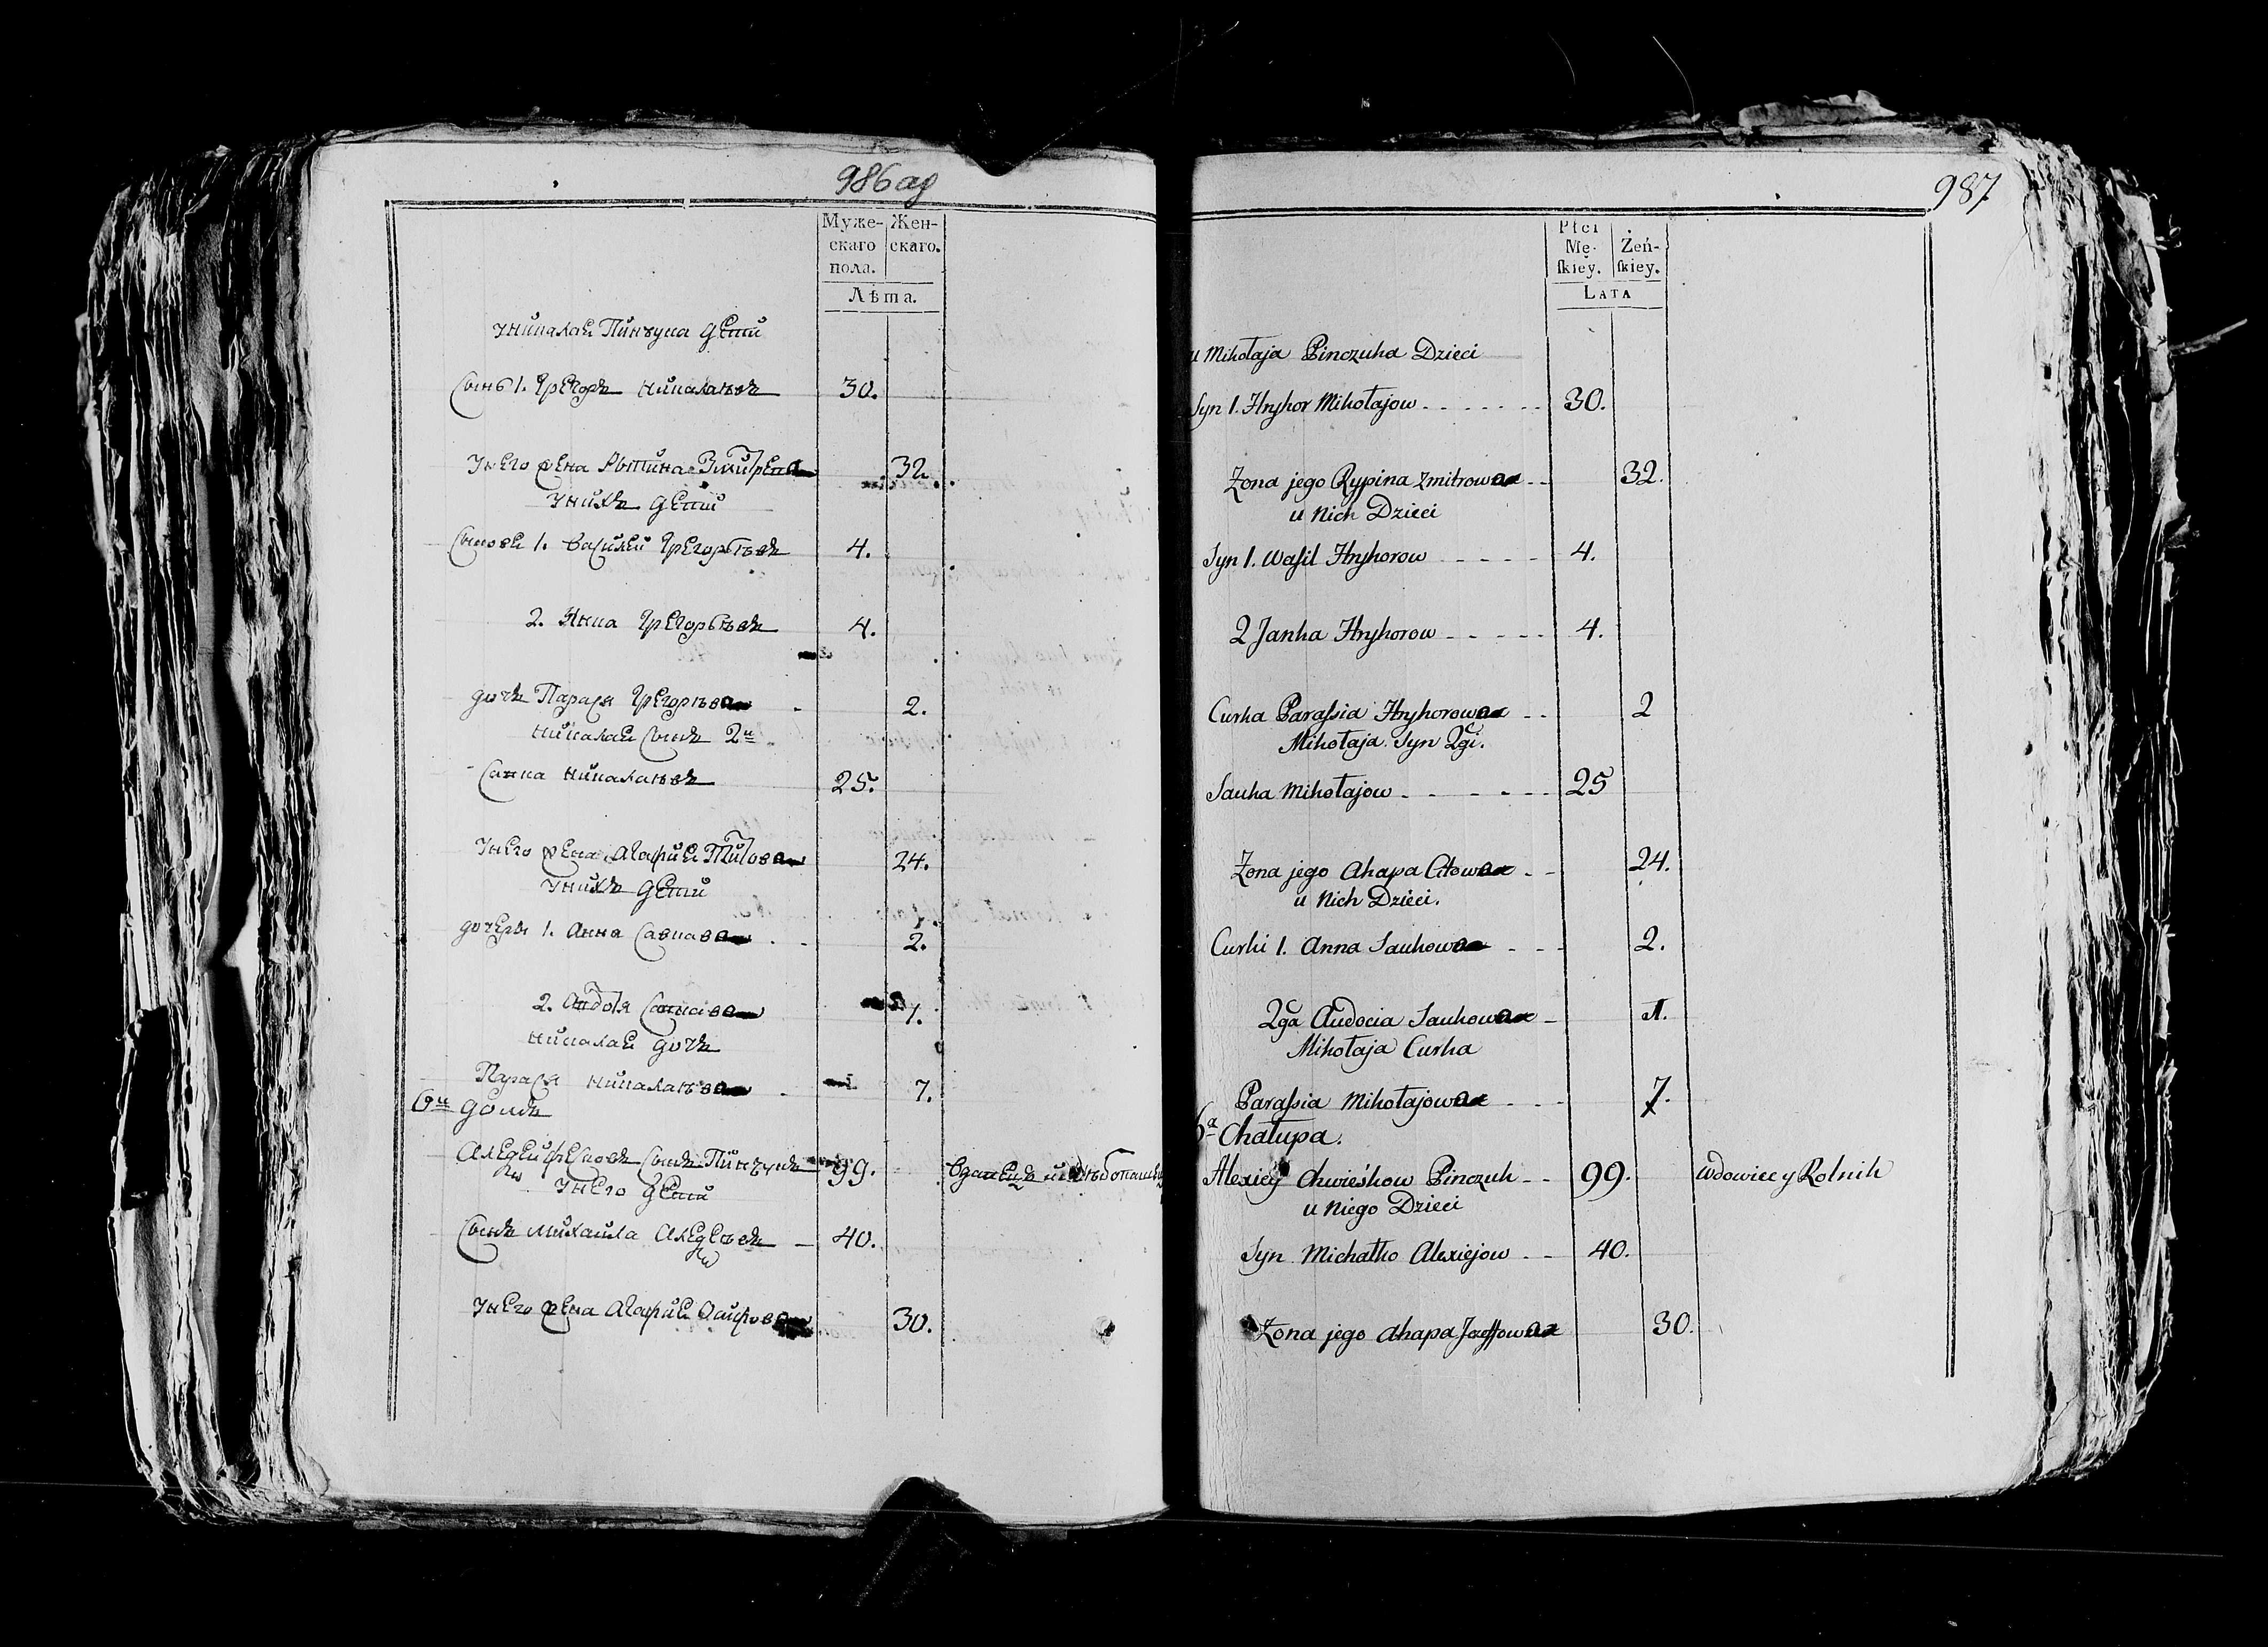 986 об
Муже- Жен-
скаго скаго.
пола.
Лѣта.
У Николаи Пинчука дети
Сынъ 1. Грегоръ Николаевъ 30.
У него жена Рыпина Змитрева 32.
У нихъ дети
Сыновеи 1. Василеи Грегорьевъ 4.
2. Янка Грегорьевъ 4.
дочь Парася Грегорьева 2.
Николаи Сынъ 2и
Савка Николаевъ 25.
У него жена Агафия Титова 24.
У нихъ дети
дочеры 1. Анна Савкова 2.
2. Авдотя Савкова 1.
Николаи дочь
Парася Николаева 7.
6и домъ
Алексей Сынъ Пинчукъ 99.
У него дети
Сынъ Михаила Алексеевъ 40.
У него жена Агафия 30.
987
Płci
Mę- Żeń-
ſkiey. ſkiey.
LATA
u Mikołaja Pinczuka Dzieci
Syn 1. Hryhor Mikołajow 30.
Żona jego Rypina Zmitrowa 32.
u Nich Dzieci
Syn 1. Waſil Hryhorow 4.
2 Janka Hryhorow 4.
Curka Paraſsia Hryhorowa 2
Mikołaja Syn 2gi.
Sauka Mikołajow 25
Żona jego Ahapa Citowa 24.
u Nich Dzieci.
Curki 1. Anna Saukowa 2.
2ga Audocia Saukowa 1.
Mikołaja Curka
Paraſsia Mikołajowa 7.
6a Chałupa.
Alexiey Chwieśkow Pinczuk 99. Wdowiec y Rolnik
u Niego Dzieci
Syn Michałko Alexiejow 40.
Żona jego Ahapa Jozeffowa 30.